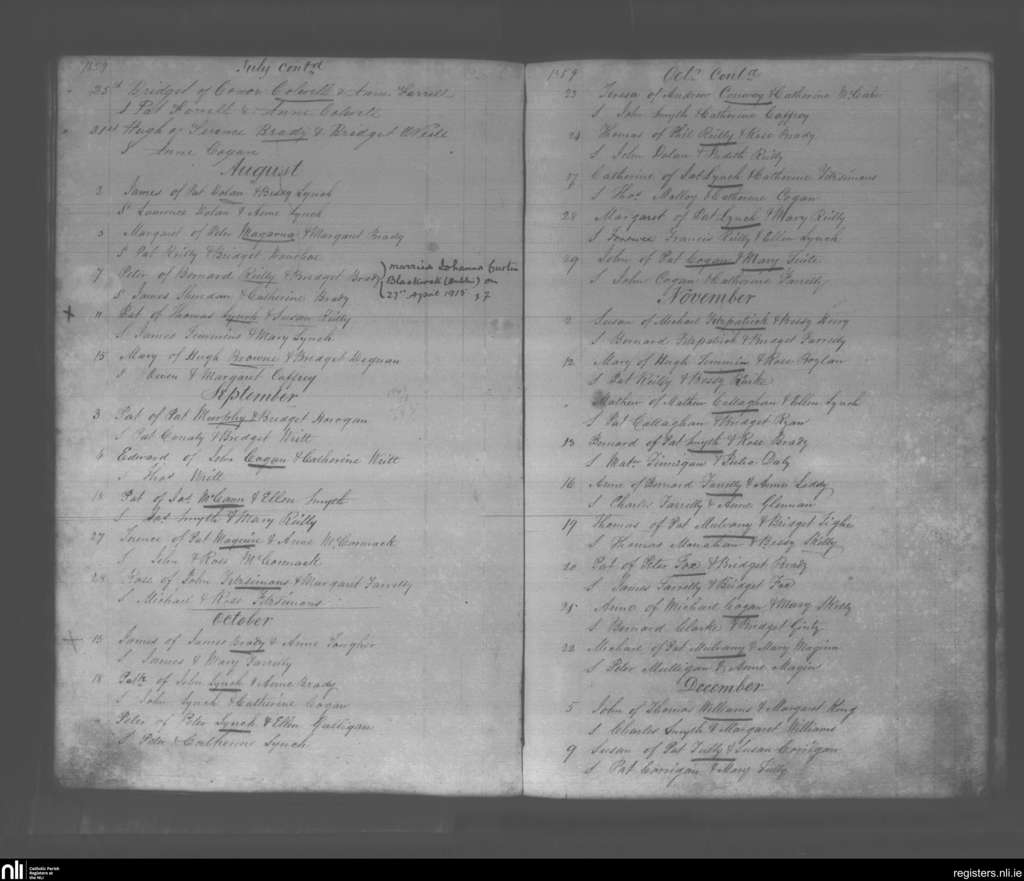 1859
July contd
25th Bridget of Conor Colwell & Anne Farrell
S Pat Farrell & Anne Colwell
31st Hugh of Terence Brady & Bridget
S Anne Cogan
August
2 James of Pat Dolan & Bessy Lynch
S Laurence Dolan & Anne Lynch
3 Margaret of Peter & Margaret Brady
S Pat Reilly & Bridget
7 Peter of Bernard Reilly & Bridget Brady
S James Sheridan & Catherine Brady
married Johanna Curtin
Blackrock (Dublin) on
27th April 1918
11 Pat of Thomas Lynch & Susan Reilly
S James Timmins & Mary Lynch
15 Mary of Hugh Browne & Bridget Degnan
S Owen & Margaret Caffrey
September
3 Pat of Pat Murphy & Bridget
S Pat & Bridget
4 Edward of John Cogan & Catherine
S Thos
18 Pat of Jas McCann & Ellen Smyth
S Jas Smyth & Mary Reilly
27 Terence of Pat Maguire & Anne McCormack
S John & Rose McCormack
28 Rose of John Fitzsimons & Margaret Farrelly
S Michael & Rose Fitzsimons
October
15 James of James Brady & Anne
S James & Mary Farrelly
18 Patk of John Lynch & Anne Brady
S John Lynch & Catherine Cogan
Peter of Peter Lynch & Ellen Galligan
S Peter & Catherine Lynch
1859
Octr Contd
23 Teresa of Andrew Conway & Catherine McCabe
S John Smyth & Catherine Caffrey
24 Thomas of Phil Reilly & Rose Brady
S John Dolan & Judith Reilly
27 Catherine of Pat Lynch & Catherine Fitzsimons
S Thos Malloy & Catherine Cogan
28 Margaret of Pat Lynch & Mary Reilly
S Terence Francis Reilly & Ellen Lynch
29 John of Pat Cogan & Mary Tuite
S John Cogan & Catherine Farrelly
November
2 Susan of Michael Fitzpatrick & Bessy
S Bernard Fitzpatrick & Bridget Farrelly
12 Mary of Hugh Timmin & Rose Boylan
S Pat Reilly & Bessy
Mathew of Mathew Callaghan & Ellen Lynch
S Pat Callaghan & Bridget Ryan
13 Bernard of Pat Smyth & Rose Brady
S Matw Finnigan & Julia Daly
16 Anne of Bernard Farrelly & Anne Liddy
S Charles Farrelly & Anne Glennan
19 Thomas of Pat Mulvany & Bridget Tighe
S Thomas Monahan & Bessy Skelly
20 Pat of Peter Fox & Bridget Brady
S James Farrelly & Bridget Fox
25 Anne of Michael Cogan & Mary Skelly
S Bernard Clarke & Bridget Ginty
22 Michael of Pat Mulvany & Mary Maginn
S Peter Mulligan & Anne Magin
December
5 John of Thomas Williams & Margaret King
S Charles Smyth & Margaret Williams
9 Susan of Pat Tully & Susan Corrigan
S Pat Corrigan & Mary Tully
nli
Catholic Parish
Registers at
the NLI
registers.nli.ie